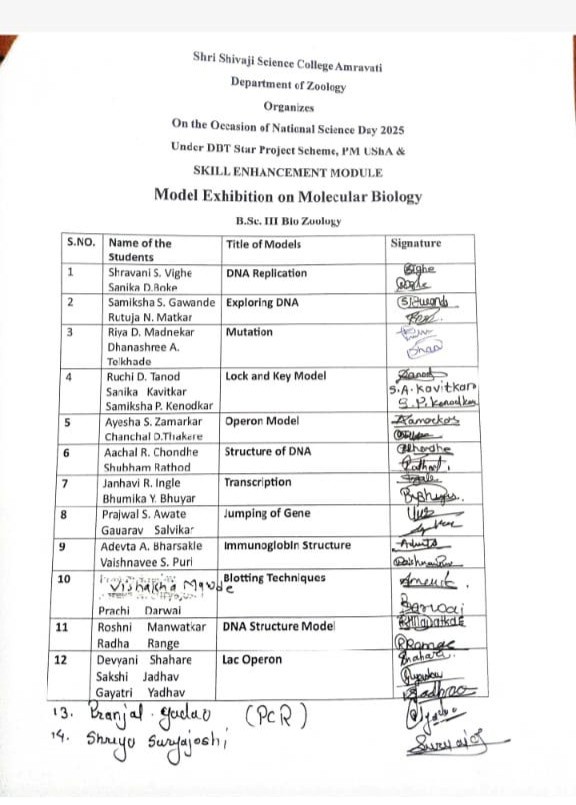 Shri Shivaji Science College Amravati
Department of Zoology
Organizes
On the Occasion of National Science Day 2025
Under DBT Star Project Scheme, PM UShA &
SKILL ENHANCEMENT MODULE
Model Exhibition on Molecular Biology
B.Sc. III Bio Zoology
S.NO. Name of the Students Title of Models Signature
1 Shravani S. Vighe DNA Replication
Sanika D.Boke
2 Samiksha S. Gawande Exploring DNA
Rutuja N. Matkar
3 Riya D. Madnekar Mutation
Dhanashree A.
Telkhade
4 Ruchi D. Tanod Lock and Key Model
Sanika Kavitkar S.A. Kavitkar
Samiksha P. Kenodkar S.P. Kenodkar
5 Ayesha S. Zamarkar Operon Model
Chanchal D.Thakere
6 Aachal R. Chondhe Structure of DNA
Shubham Rathod
7 Janhavi R. Ingle Transcription
Bhumika Y. Bhuyar
8 Prajwal S. Awate Jumping of Gene
Gauarav Salvikar
9 Adevta A. Bharsakle Immunoglobin Structure
Vaishnavee S. Puri
10 Blotting Techniques
Vishakha
Prachi Darwai
11 Roshni Manwatkar DNA Structure Model
Radha Range
12 Devyani Shahare Lac Operon
Sakshi Jadhav
Gayatri Yadhav
13. Pranjal (PCR)
14. Shreya Suryajoshi